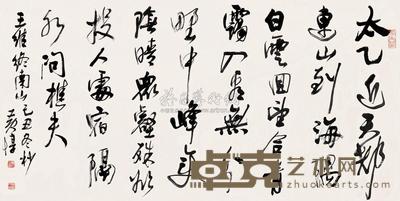 太乙近天都
連山到海隅
白雲回望合青
靄入看無分
野中峰變
陰晴眾壑殊欲
投人處宿隔
水問樵夫
王維終南山己丑冬杪
艺术网